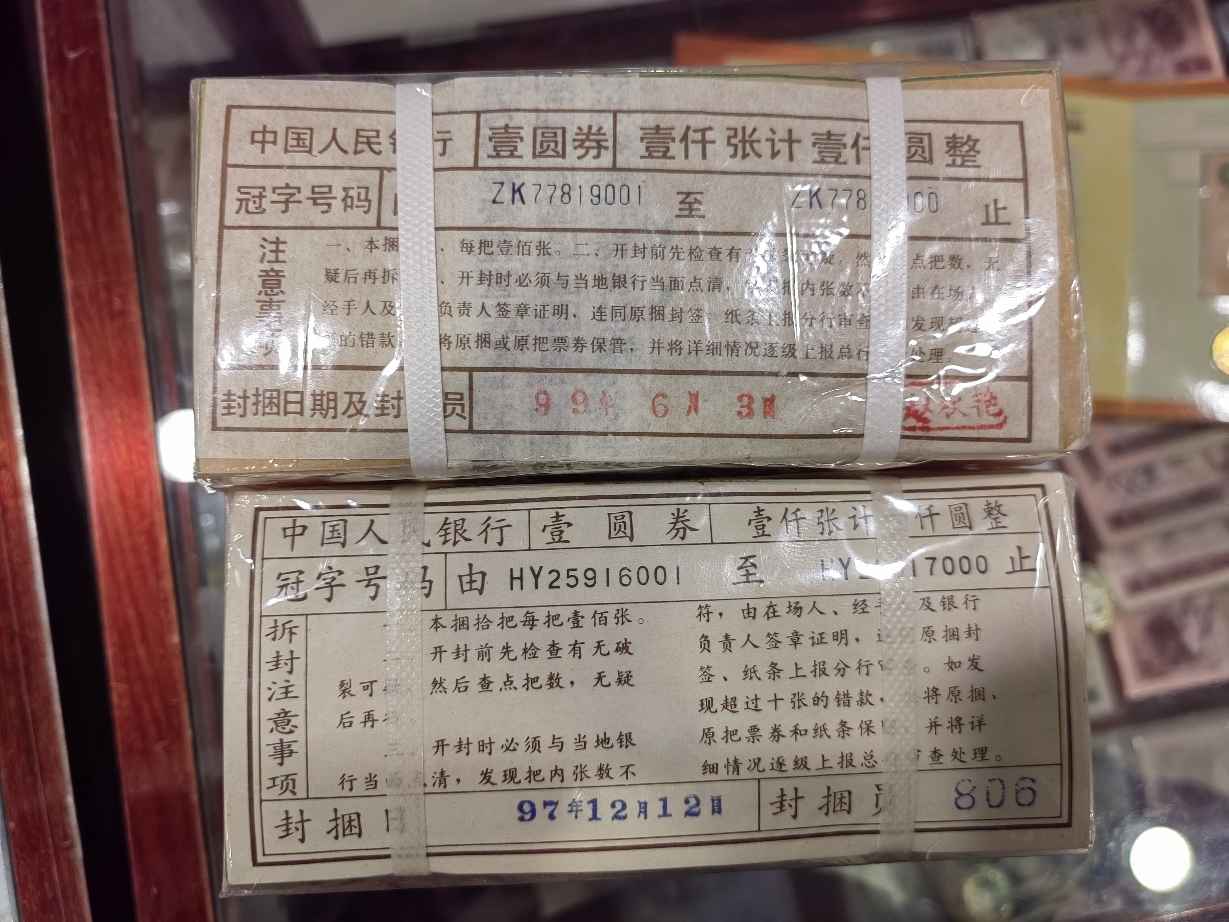 中国人民 行 壹圆券 壹仟张计壹仟圆整
冠字号码 ZK77819001 至 ZK778 00 止
注意事
一、本捆 、每把壹佰张。二、开封前先检查有 然 点把数,无
疑后再拆 、开封时必须与当地银行当面点清, 把内张数 由在场
经手人及 负责人签章证明,连同原捆封签、纸条上报分行审查 发现
的错款 将原捆或原把票券保管,并将详细情况逐级上报总行 处理。
封捆日期及封 员 99年 6月 3日
中国人民银行 壹圆券 壹仟张计 仟圆整
冠字号码 由 HY25916001 至 HY2 17000 止
拆封注意事项
本捆拾把每把壹佰张。
开封前先检查有无破
裂可 然后查点把数,无疑
后再
三 开封时必须与当地银
行当面点清,发现把内张数不
符,由在场人、经手 及银行
负责人签章证明,连 原捆封
签、纸条上报分行 。如发
现超过十张的错款, 将原捆、
原把票券和纸条保 并将详
细情况逐级上报总 审查处理。
封捆日 97年12月12日 封捆员 806